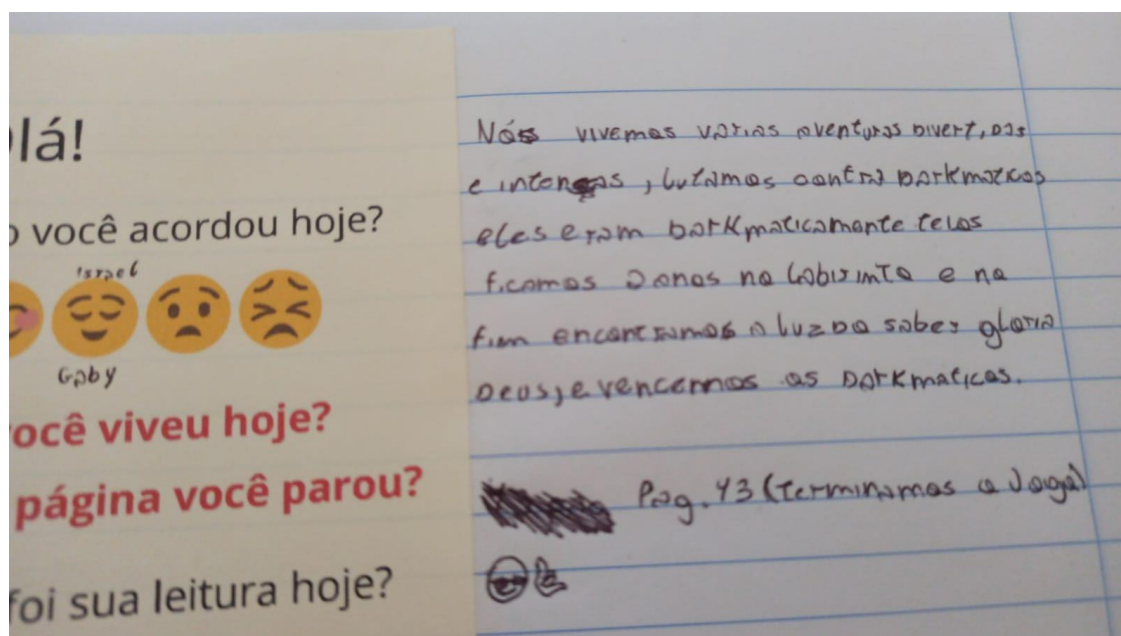 lá!
você acordou hoje?
Israel
Gaby
ocê viveu hoje?
página você parou?
foi sua leitura hoje?
Nós vivemos varias aventuras divertidas
e intensas, lutamos contra Darkmaticos
eles eram darkmaticamente
ficamos no labirinto e no
fim encontramos a luz do saber gloria
Deus, e vencemos os Darkmaticos.
Pag. 43 (terminamos o Jogo)